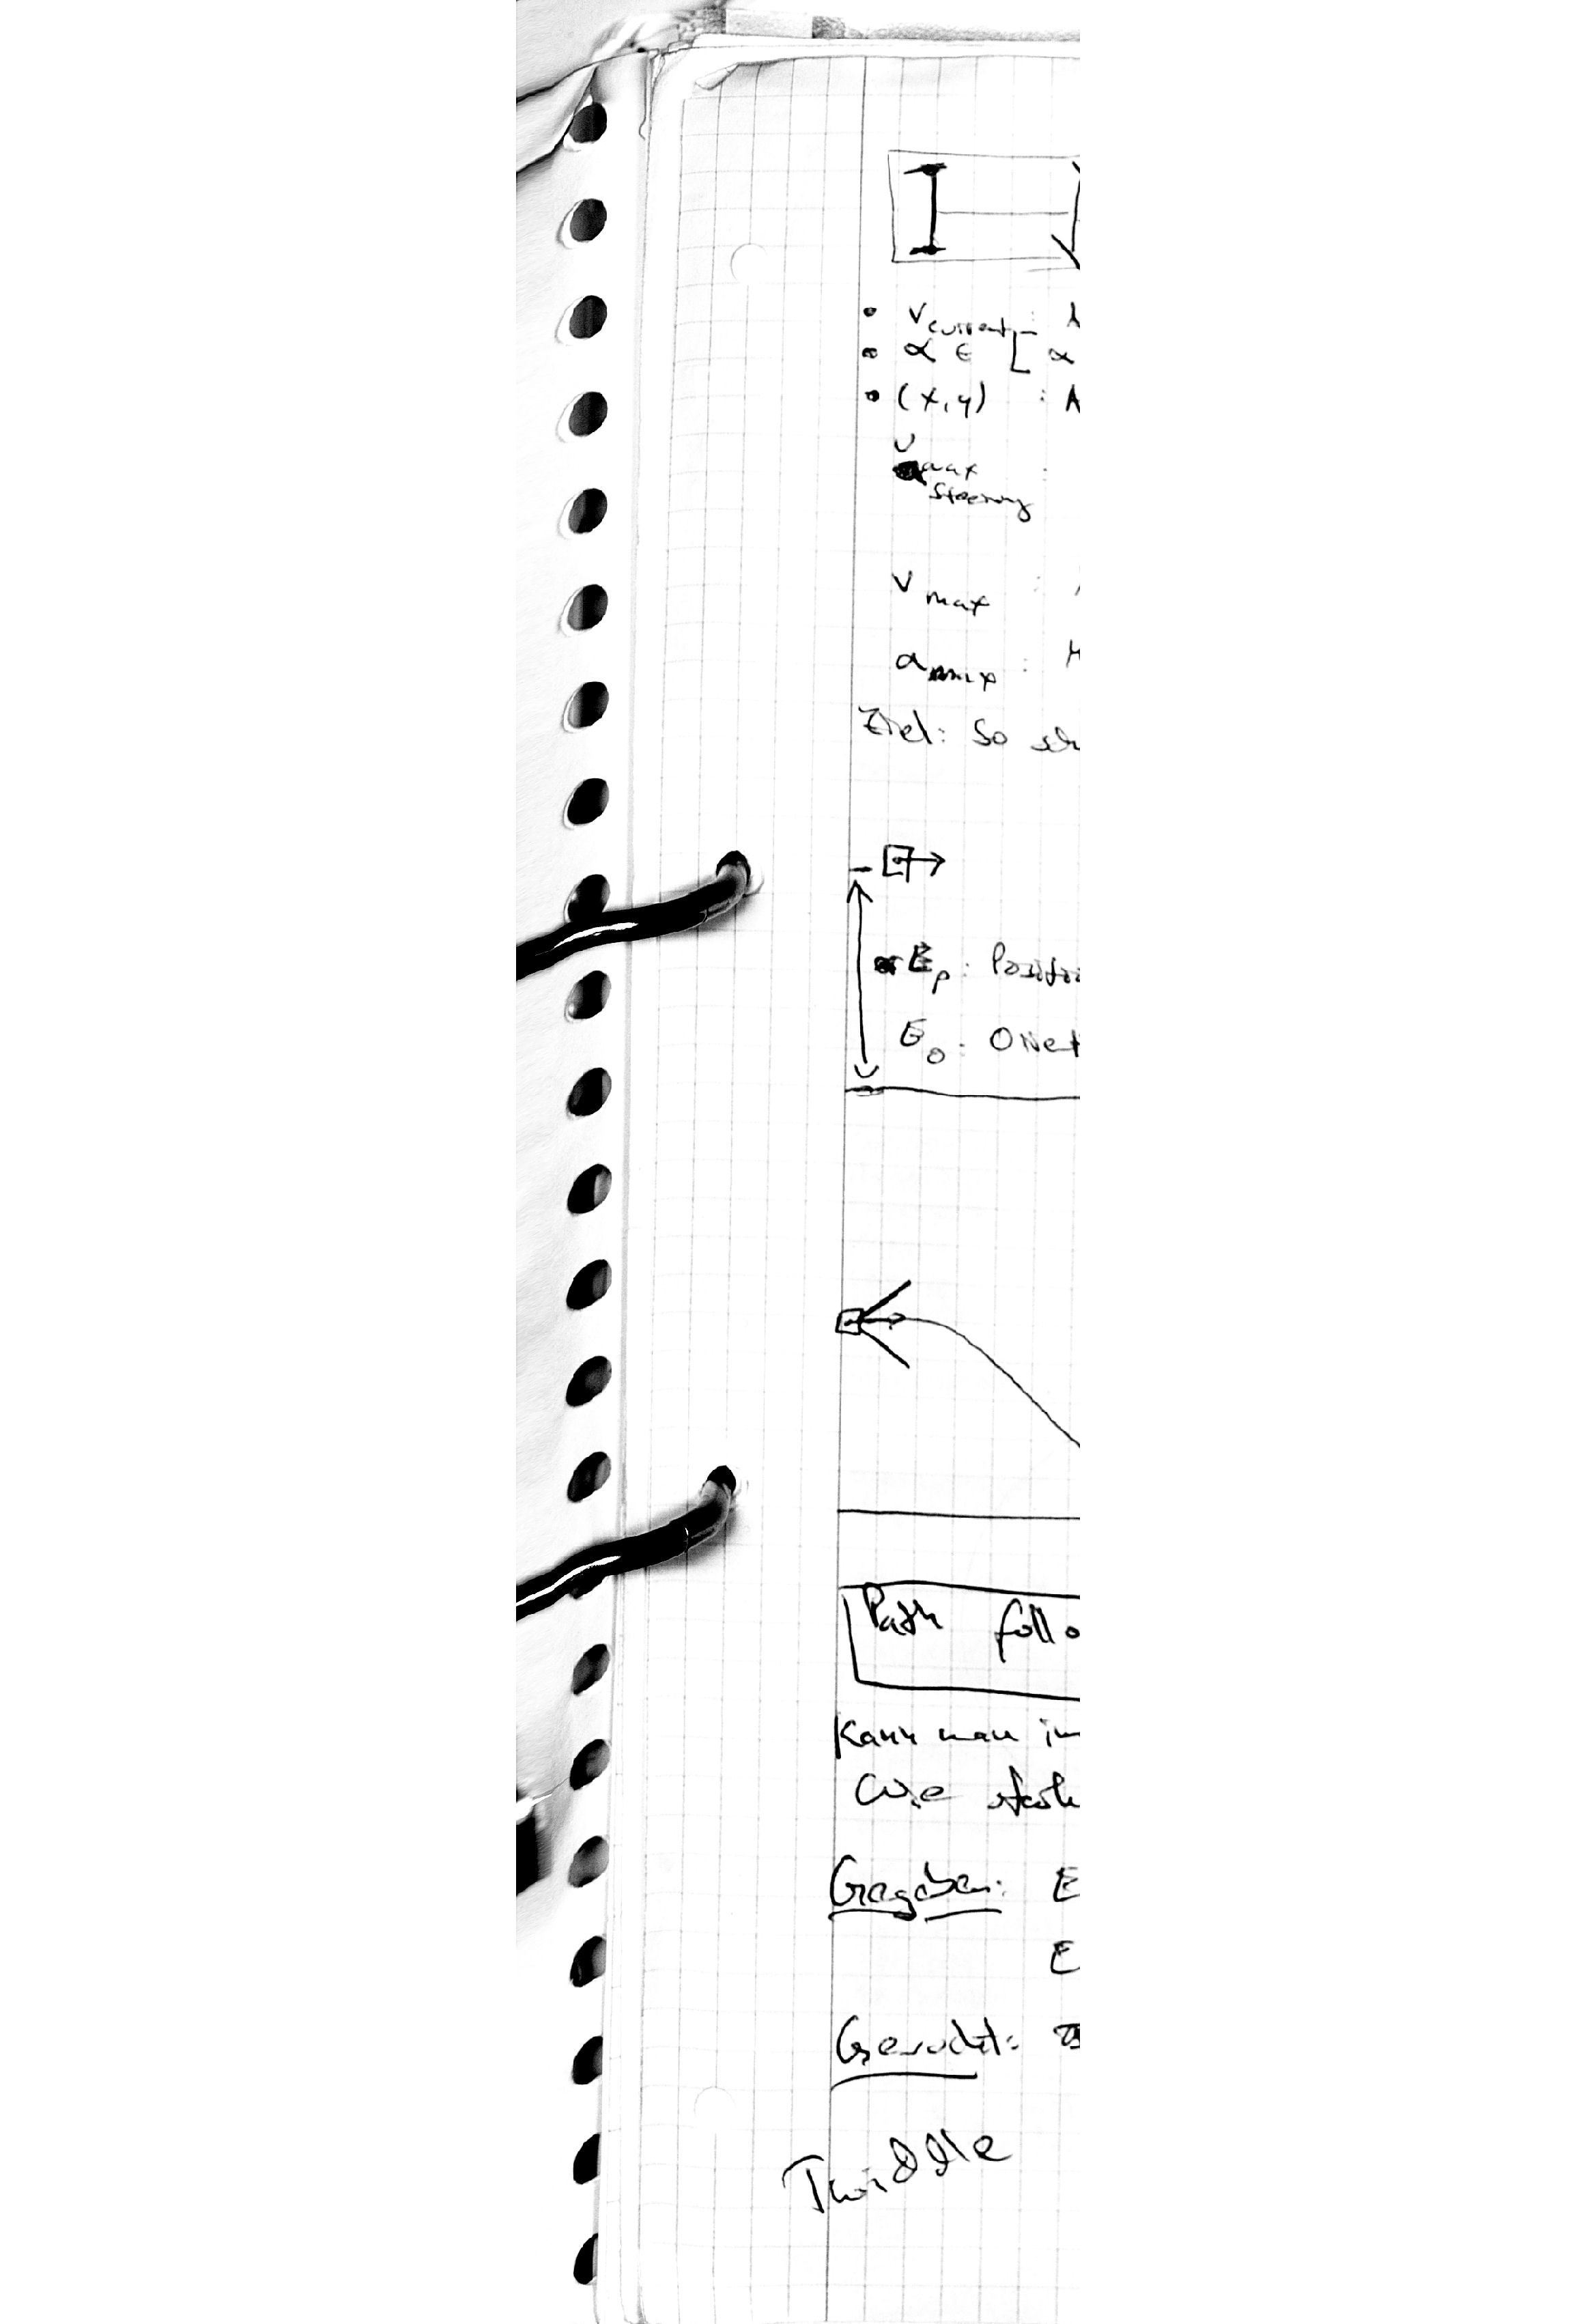 • v current :
• α ∈ [ α
• (x,y) :
v max :
steering
v max :
a max :
Ziel: So
E_p : Positio
E_o : Orient
Path follo
Kann man im
Wie
Gegeben: E
E
Gesucht:
Twiddle